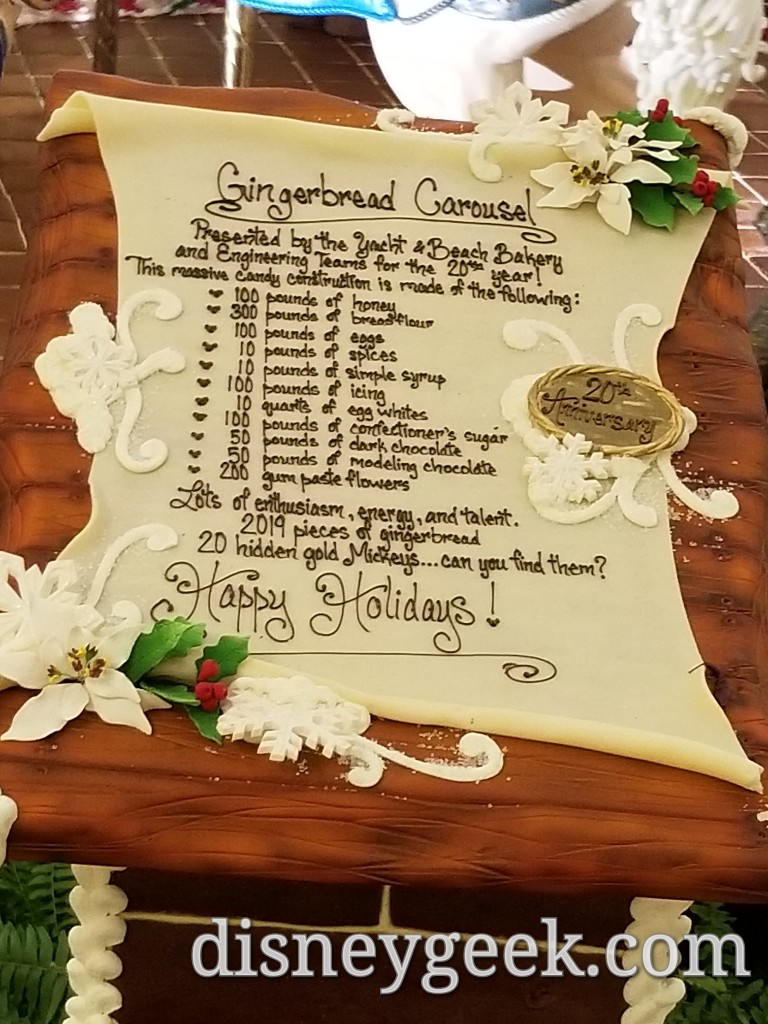 Gingerbread Carousel
Presented by the Yacht & Beach Bakery
and Engineering Teams for the 20th year!
This massive candy construction is made of the following:
100 pounds of honey
300 pounds of bread flour
100 pounds of eggs
10 pounds of spices
10 pounds of simple syrup
100 pounds of icing
10 quarts of egg whites
100 pounds of confectioner's sugar
50 pounds of dark chocolate
50 pounds of modeling chocolate
200 gum paste flowers
Lots of enthusiasm, energy, and talent.
2019 pieces of gingerbread
20 hidden gold Mickeys...can you find them?
Happy Holidays!
20th
Anniversary
disneygeek.com